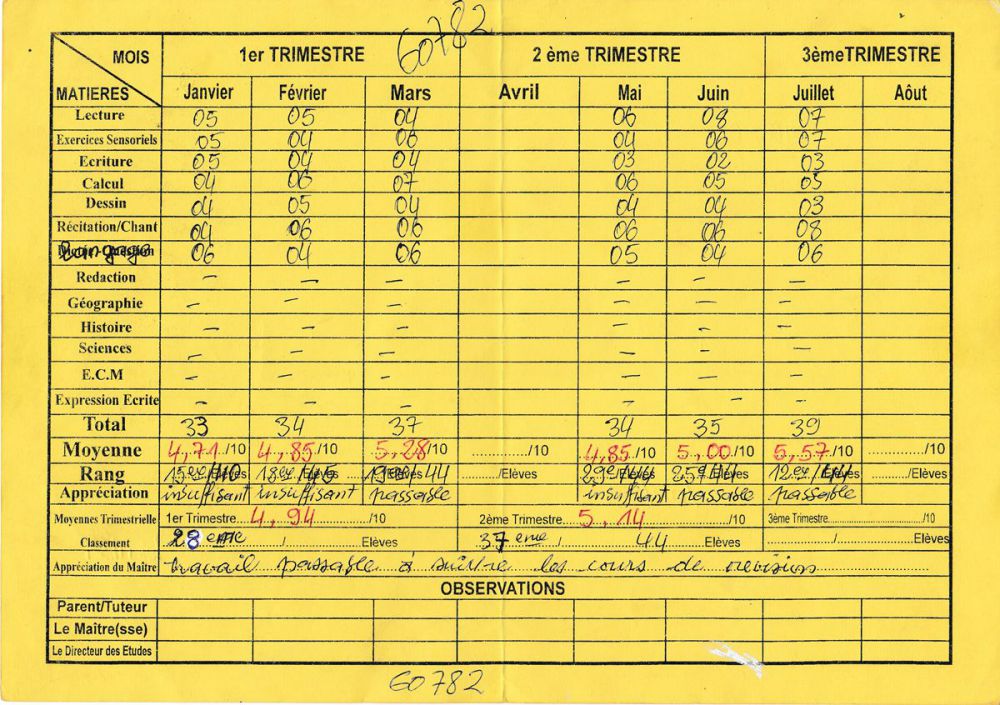 60782
MOIS 1er TRIMESTRE 2 ème TRIMESTRE 3ème TRIMESTRE
MATIERES Janvier Février Mars Avril Mai Juin Juillet Aôut
Lecture 05 05 04 06 08 07
Exercices Sensoriels 05 04 06 04 06 07
Ecriture 05 04 04 03 02 03
Calcul 04 06 07 06 05 05
Dessin 04 05 04 04 04 03
Récitation/Chant 04 06 06 06 06 08
Langage 06 04 06 05 04 06
Redaction – – – – – –
Géographie – – – – – –
Histoire – – – – – –
Sciences – – – – – –
E.C.M – – – – – –
Expression Ecrite – – – – – –
Total 33 34 37 34 35 39
Moyenne 4,71/10 4,85/10 5,28/10 /10 4,85/10 5,00/10 5,57/10 /10
Rang 15e/40 Elèves 18e/45 Elèves 44 /Elèves 29e/44 Elèves 25e/44 12e/44 /Elèves
Appréciation insuffisant insuffisant passable insuffisant passable passable
Moyennes Trimestrielle 1er Trimestre 4,94 /10 2ème Trimestre 5,14 /10 3ème Trimestre /10
Classement 28 eme / Elèves 37 eme / 44 Elèves / Elèves
Appréciation du Maître travail passable à suivre les cours de revision
OBSERVATIONS
Parent/Tuteur
Le Maître(sse)
Le Directeur des Etudes
60782